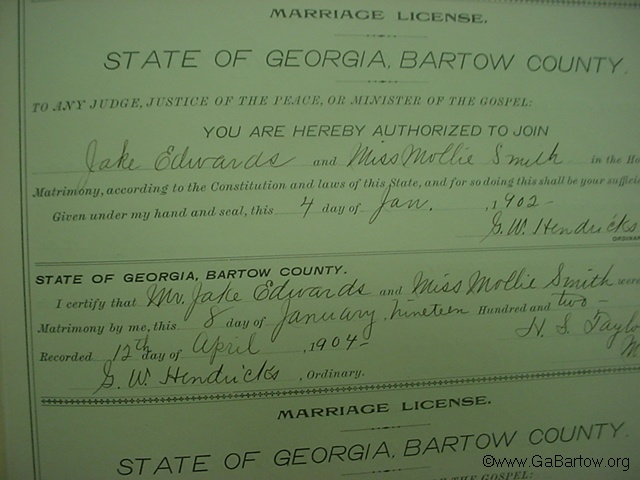 MARRIAGE LICENSE.
STATE OF GEORGIA, BARTOW COUNTY.
TO ANY JUDGE, JUSTICE OF THE PEACE, OR MINISTER OF THE GOSPEL:
YOU ARE HEREBY AUTHORIZED TO JOIN
Jake Edwards and Miss Mollie Smith in the Ho
Matrimony, according to the Constitution and laws of this State, and for so doing this shall be your sufficie
Given under my hand and seal, this 4 day of Jan. , 1902-
G. W. Hendricks
ORDINAR
STATE OF GEORGIA, BARTOW COUNTY.
I certify that Mr. Jake Edwards and Miss Mollie Smith were
Matrimony by me, this 8 day of January, Nineteen Hundred and two -
H. S. Taylo
Recorded 12th day of April , 1904-
M
G. W. Hendricks , Ordinary.
MARRIAGE LICENSE.
STATE OF GEORGIA, BARTOW COUNTY.
OF THE GOSPEL:
©www.GaBartow.org